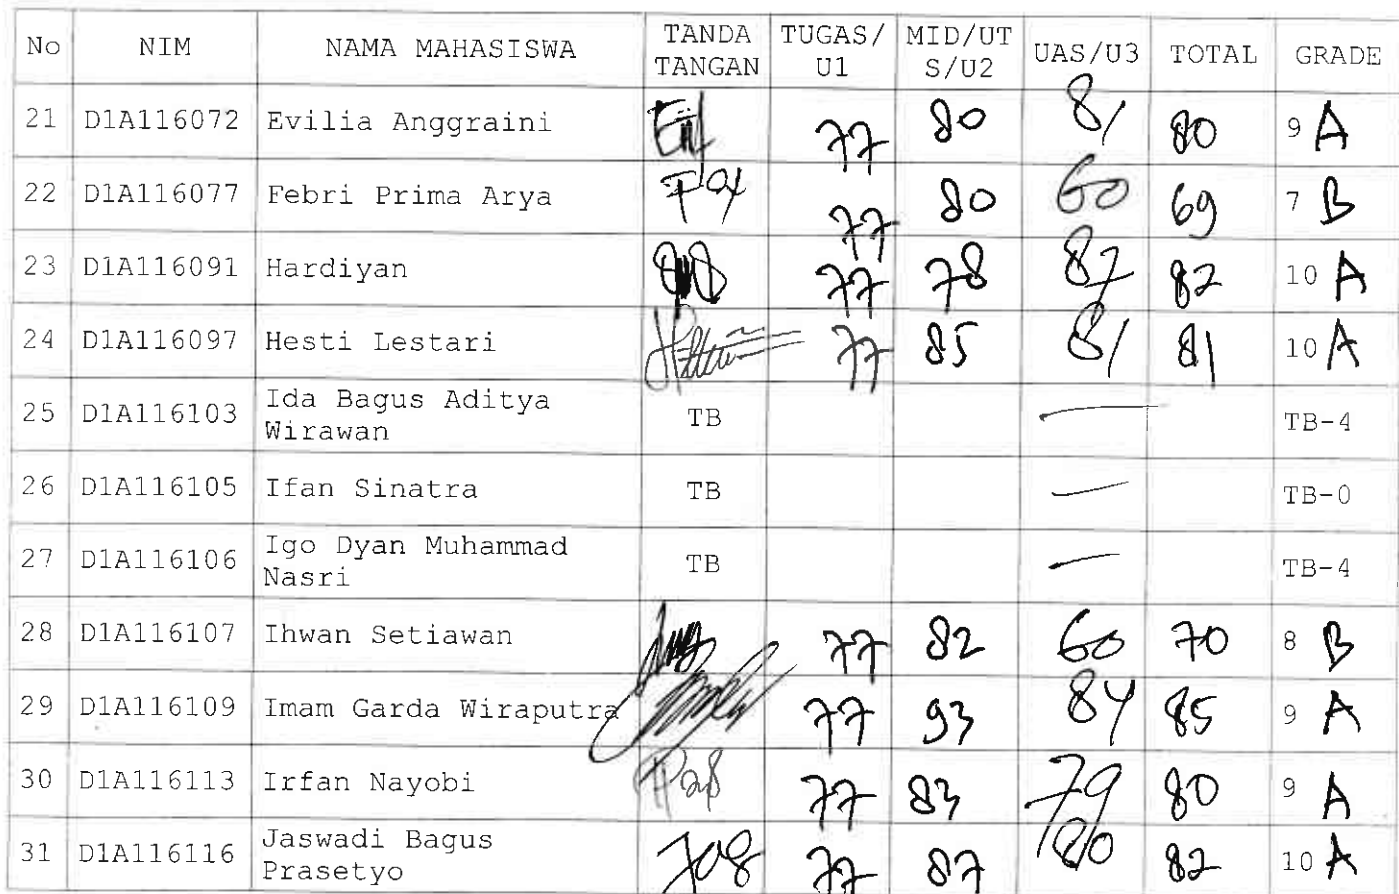 No NIM NAMA MAHASISWA TANDA TANGAN TUGAS/U1 MID/UTS/U2 UAS/U3 TOTAL GRADE
21 D1A116072 Evilia Anggraini 77 80 81 80 9 A
22 D1A116077 Febri Prima Arya 77 80 60 69 7 B
23 D1A116091 Hardiyan 77 78 87 82 10 A
24 D1A116097 Hesti Lestari 77 85 81 81 10 A
25 D1A116103 Ida Bagus Aditya Wirawan TB — TB-4
26 D1A116105 Ifan Sinatra TB — TB-0
27 D1A116106 Igo Dyan Muhammad Nasri TB — TB-4
28 D1A116107 Ihwan Setiawan 77 82 60 70 8 B
29 D1A116109 Imam Garda Wiraputra 77 93 84 85 9 A
30 D1A116113 Irfan Nayobi 77 83 79 80 9 A
31 D1A116116 Jaswadi Bagus Prasetyo 77 87 80 82 10 A